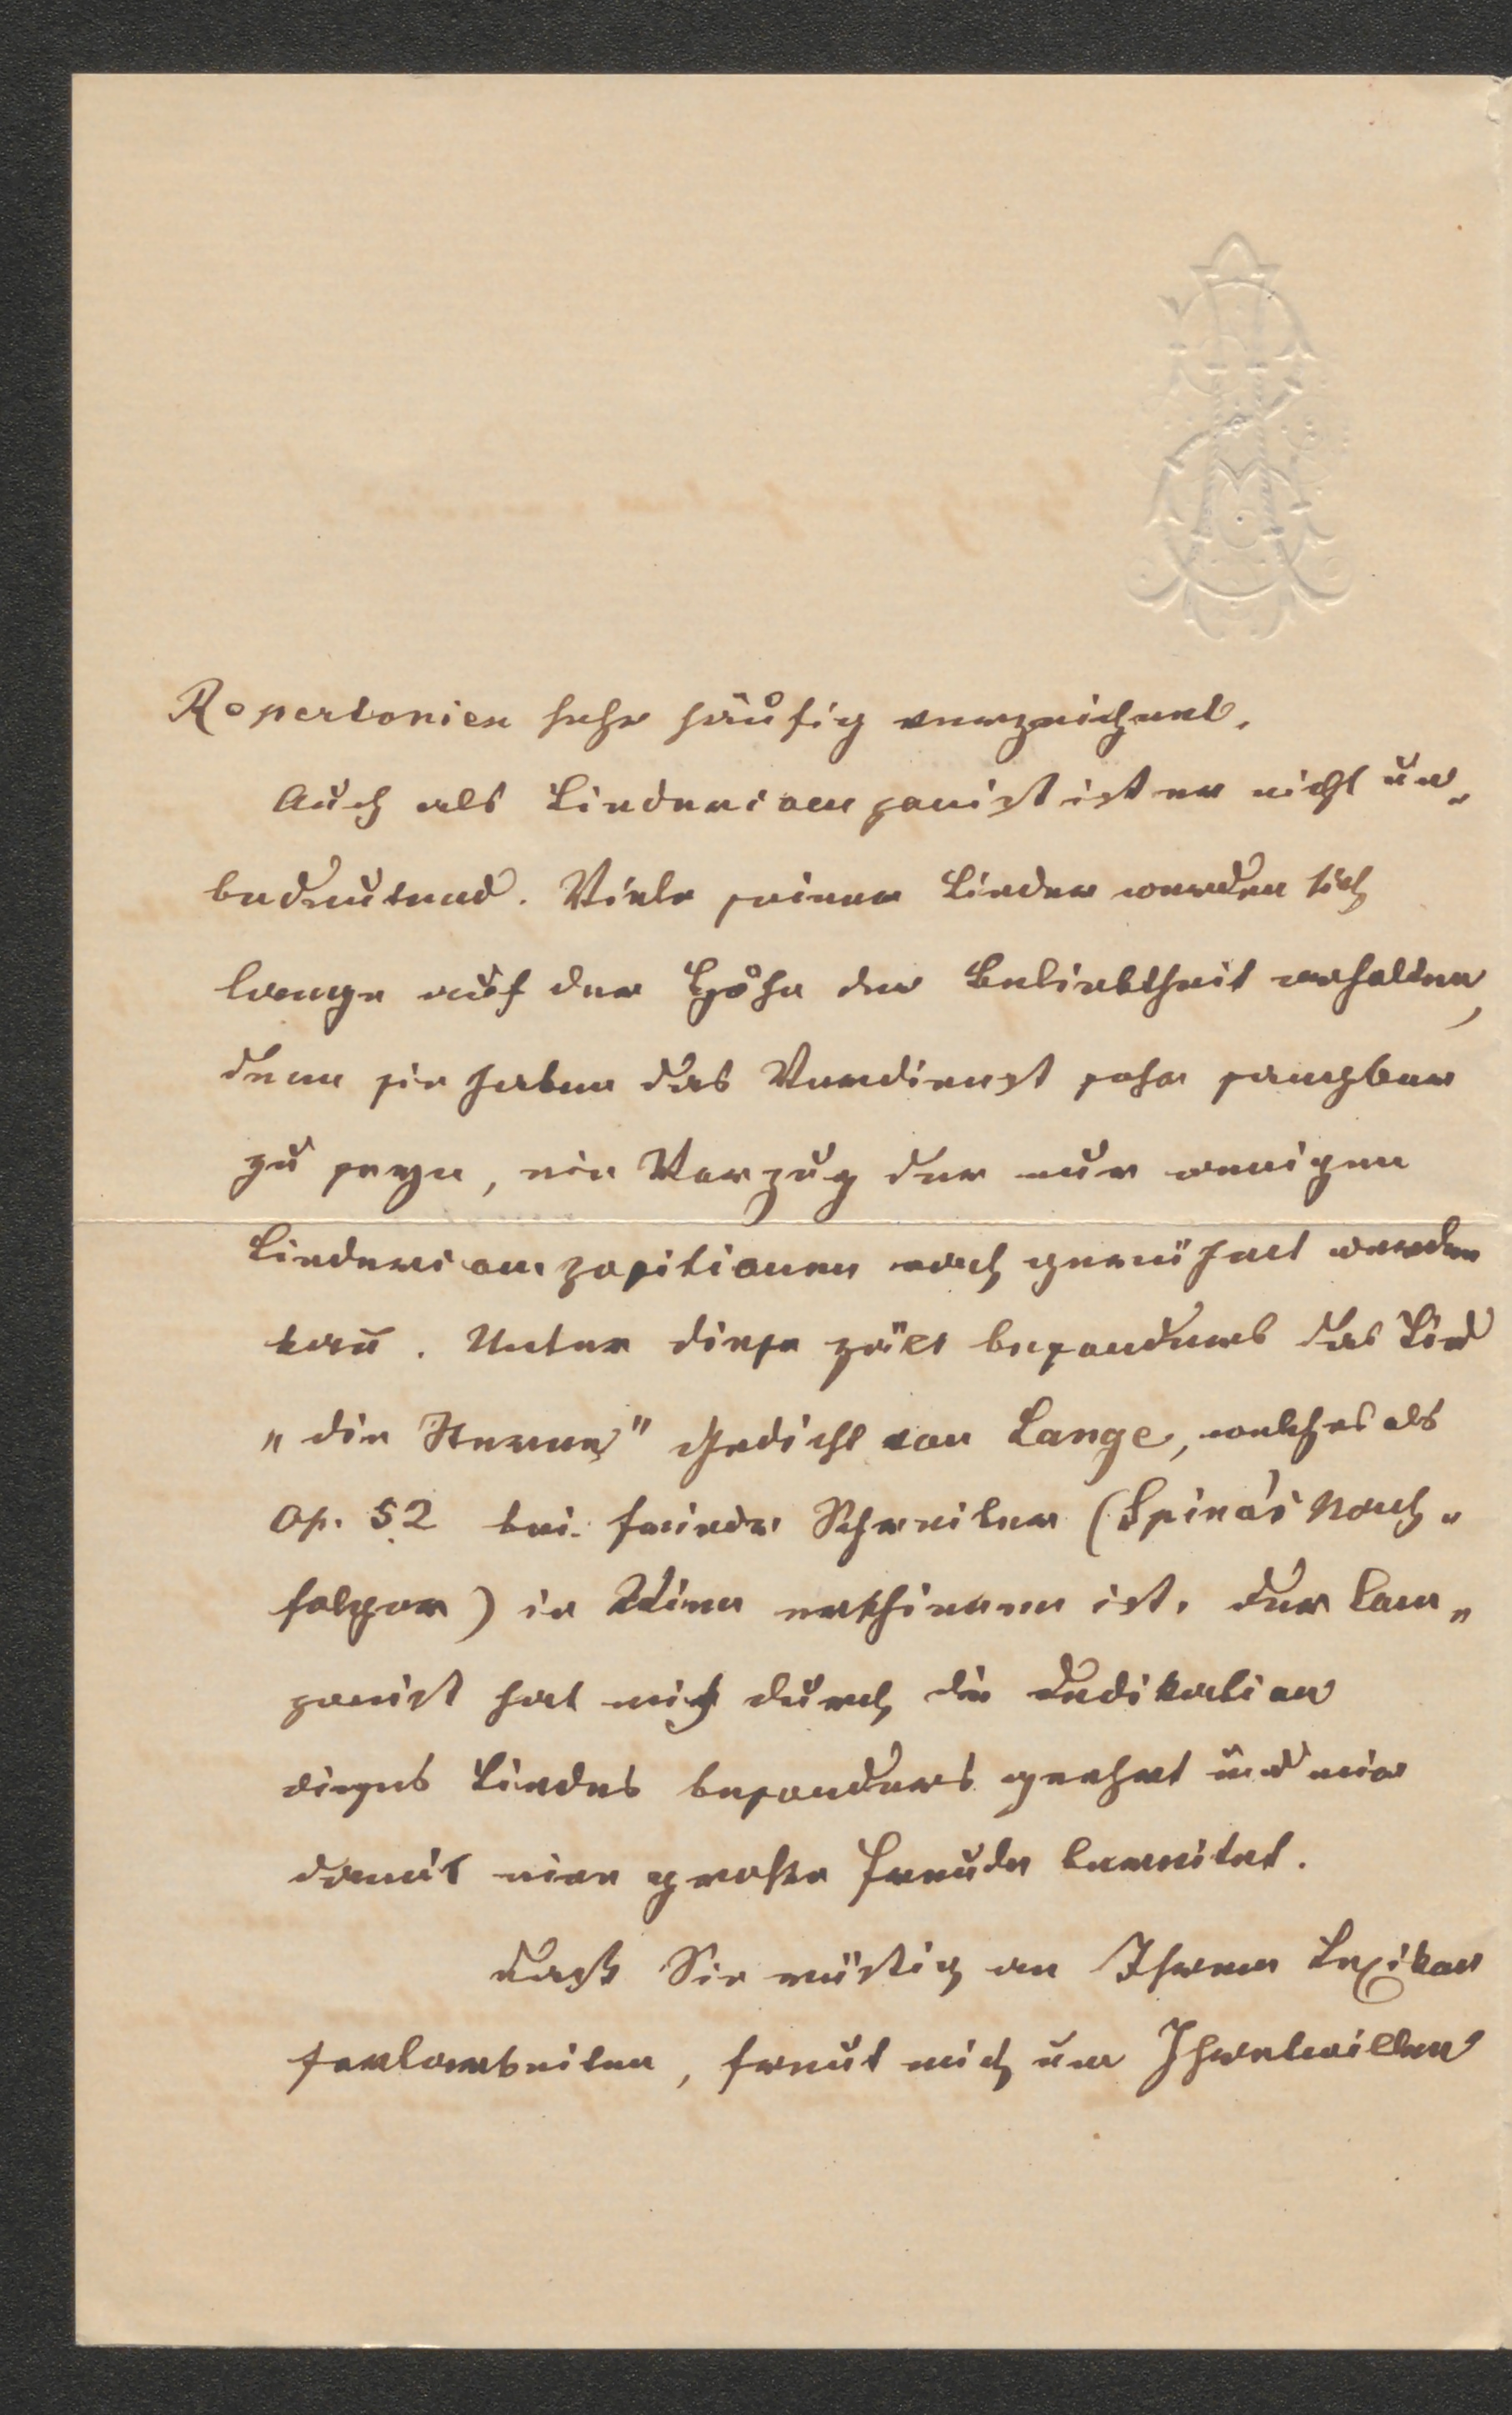 Repertorien sehr häufig verzeichnet.
Auch als Liederkomponist ist er nicht un„
bedeutend. Viele seiner Lieder werden sich
lange auf der Höhe der Beliebtheit erhalten,
denn sie haben das Verdienst sehr sangbar
zu seyn, ein Vorzug der nur wenigen
Liederkompositionen nach gerühmt werden
kañ. Unter diese zält besonders das Lied
„die Sterne" Gedicht von Lange, welches als
Op. 52 bei Schreiber (Spina's Nach„
folger) in Wien erschienen ist. Der Com„
ponist hat mich durch die Dedikation
dieses Liedes besonders geehrt und mir
damit eine große Freude bereitet.
Daß Sie rüstig an Ihrem Lexikon
fortarbeiten, freut mich um Ihretwillen